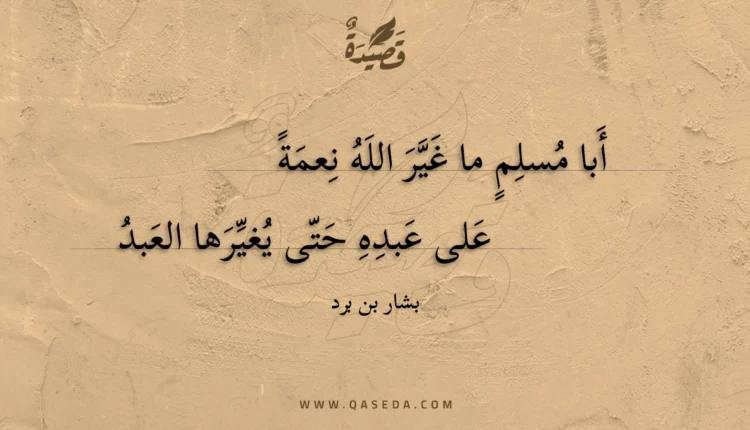 قَصِيْدَةٌ
أَبا مُسلِمٍ ما غَيَّرَ اللَهُ نِعمَةً
عَلى عَبدِهِ حَتّى يُغيِّرَها العَبدُ
بشار بن برد
WWW.QASEDA.COM